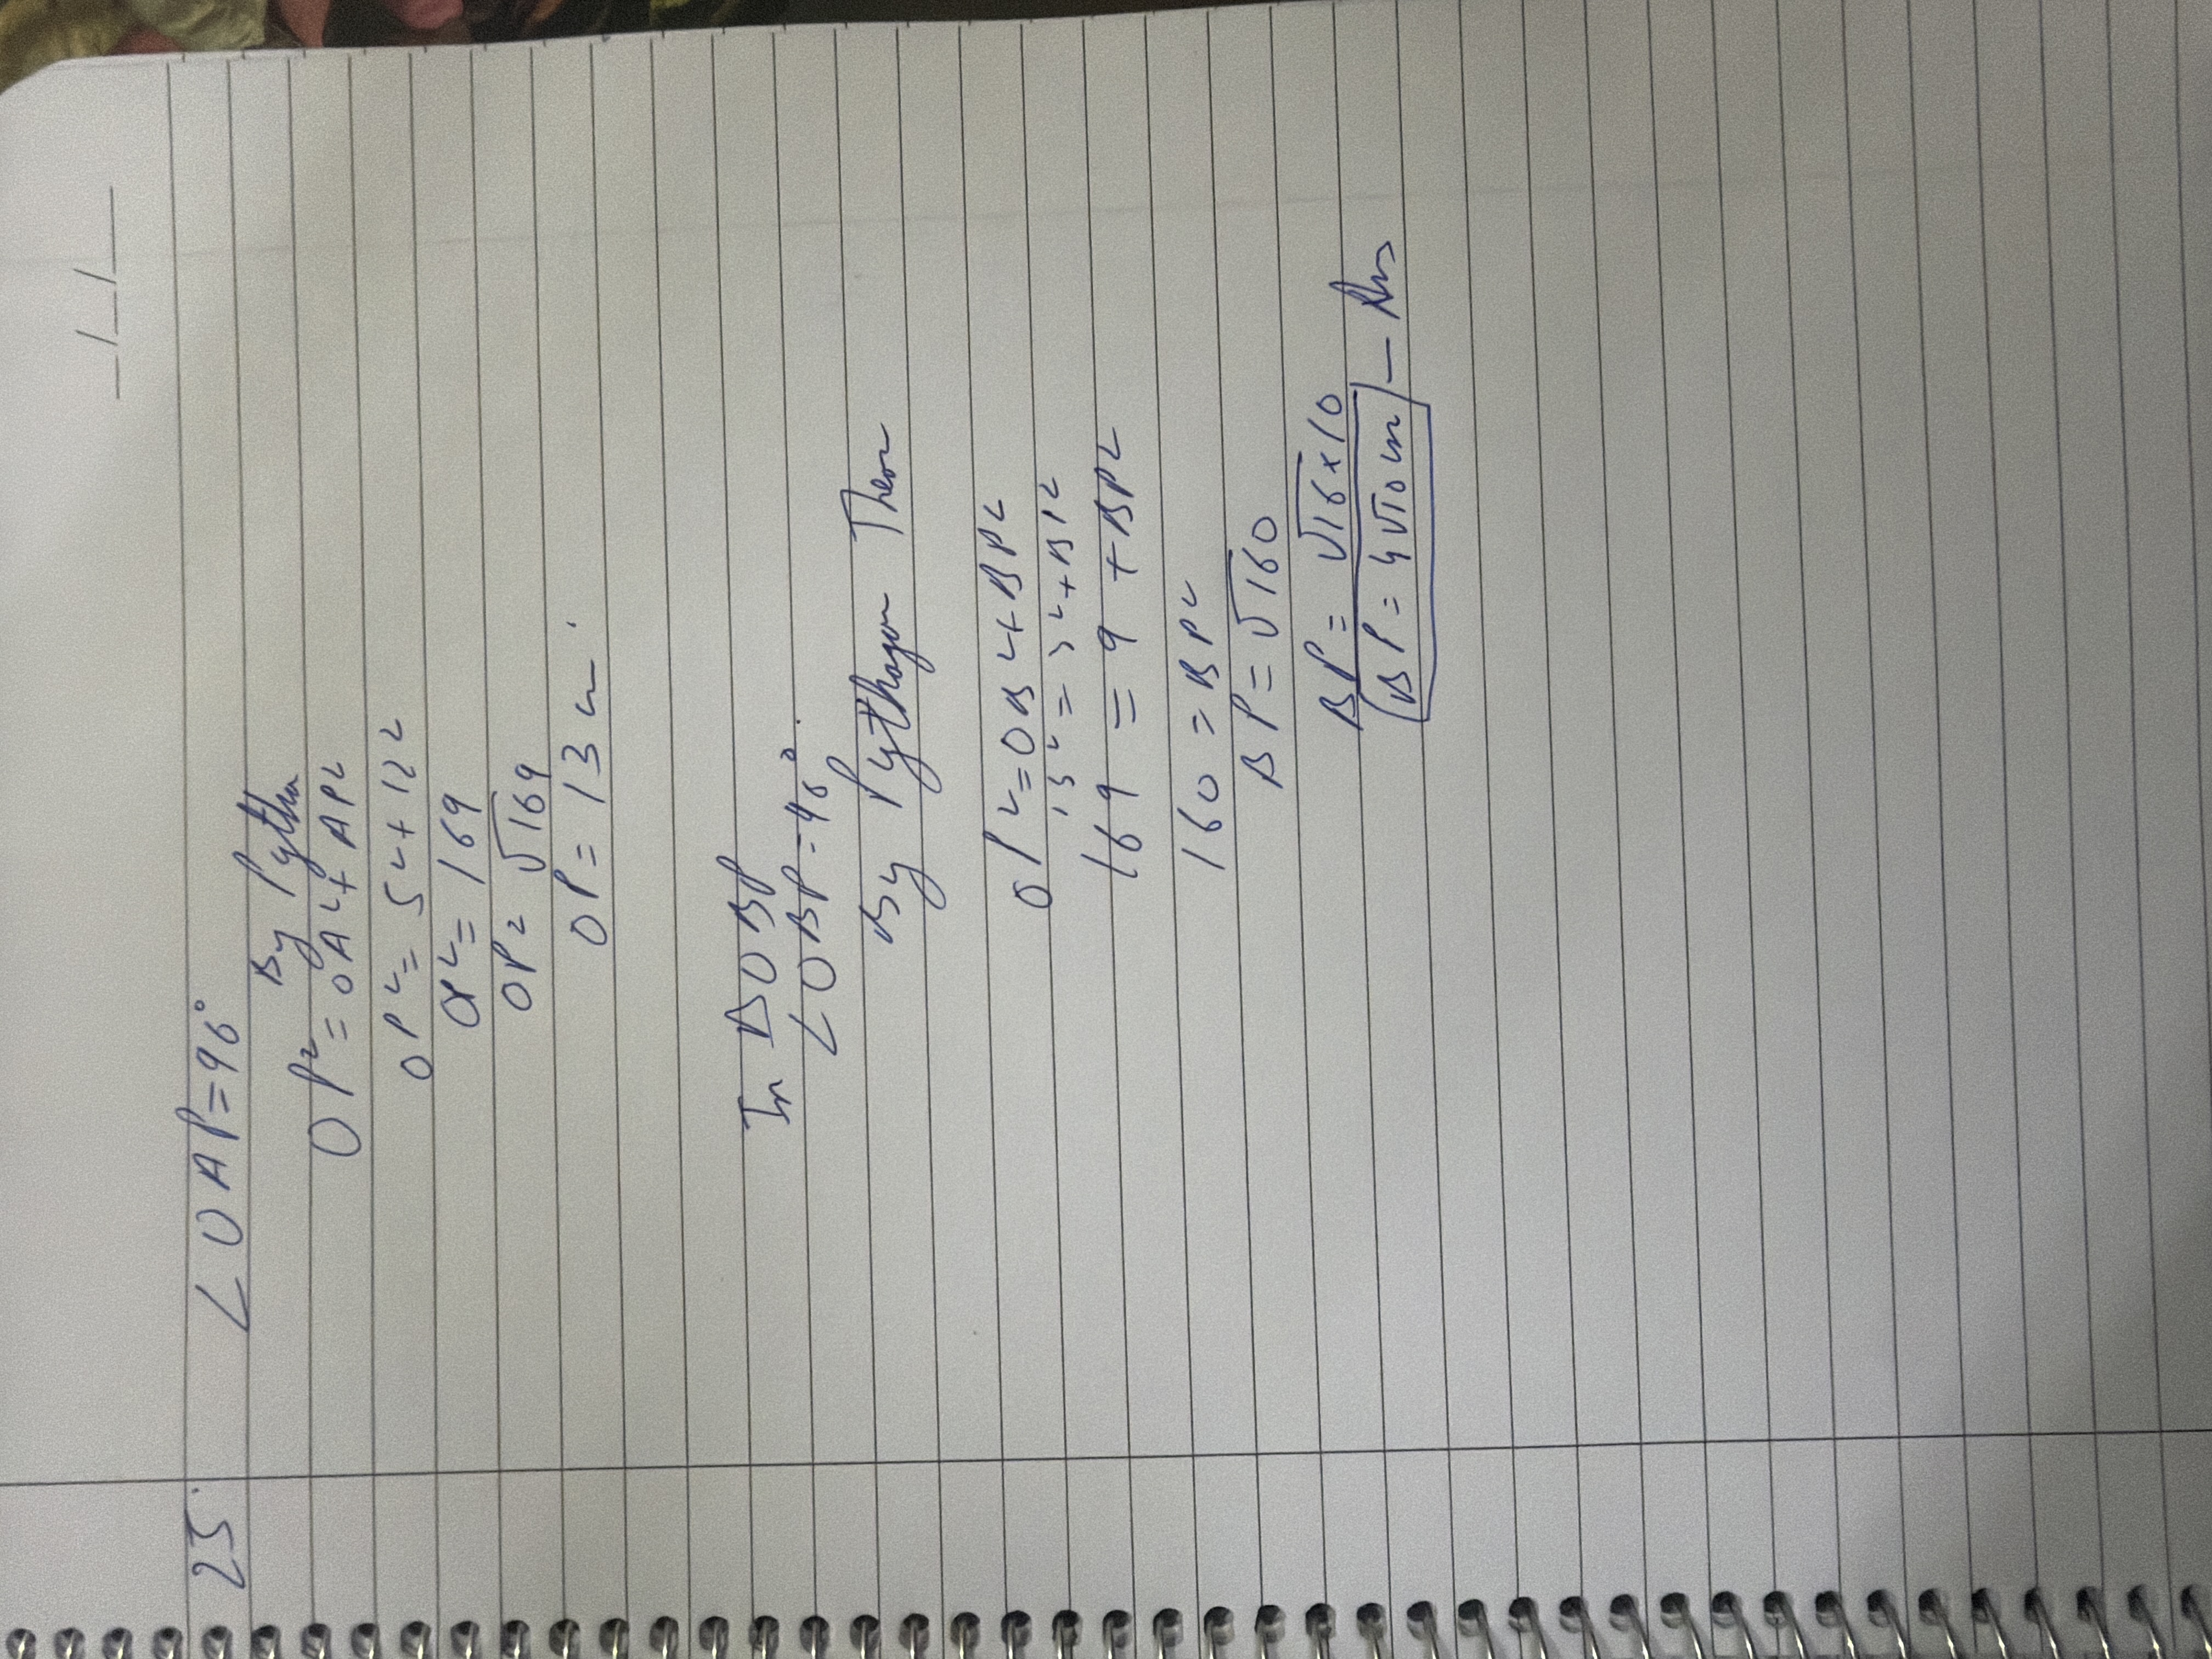 _/_/_
25. ∠OAP=90°
By Pytha
OP²=OA²+AP²
OP²=5²+12²
OP²=169
OP=√169
OP=13cm.
In ΔOBP
∠OBP=90°.
By Pythagor Theor
OP²=OB²+BP²
13²=3²+BP²
169=9+BP²
160=BP²
BP=√160
BP=√16×10
BP=4√10cm - Ans